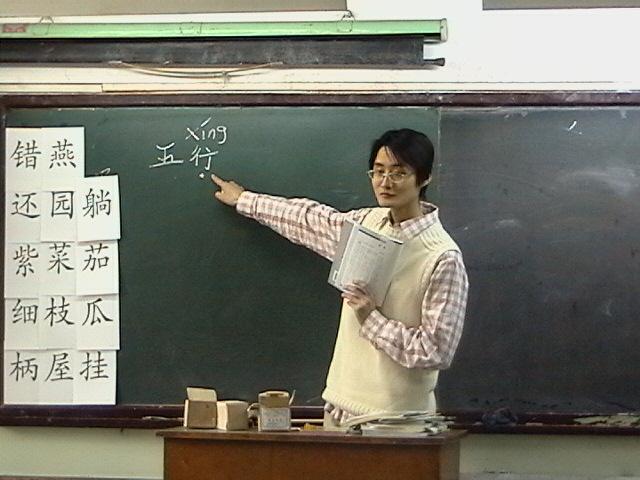 xíng
五行
错燕
还园躺
紫菜茄
细枝瓜
柄屋挂